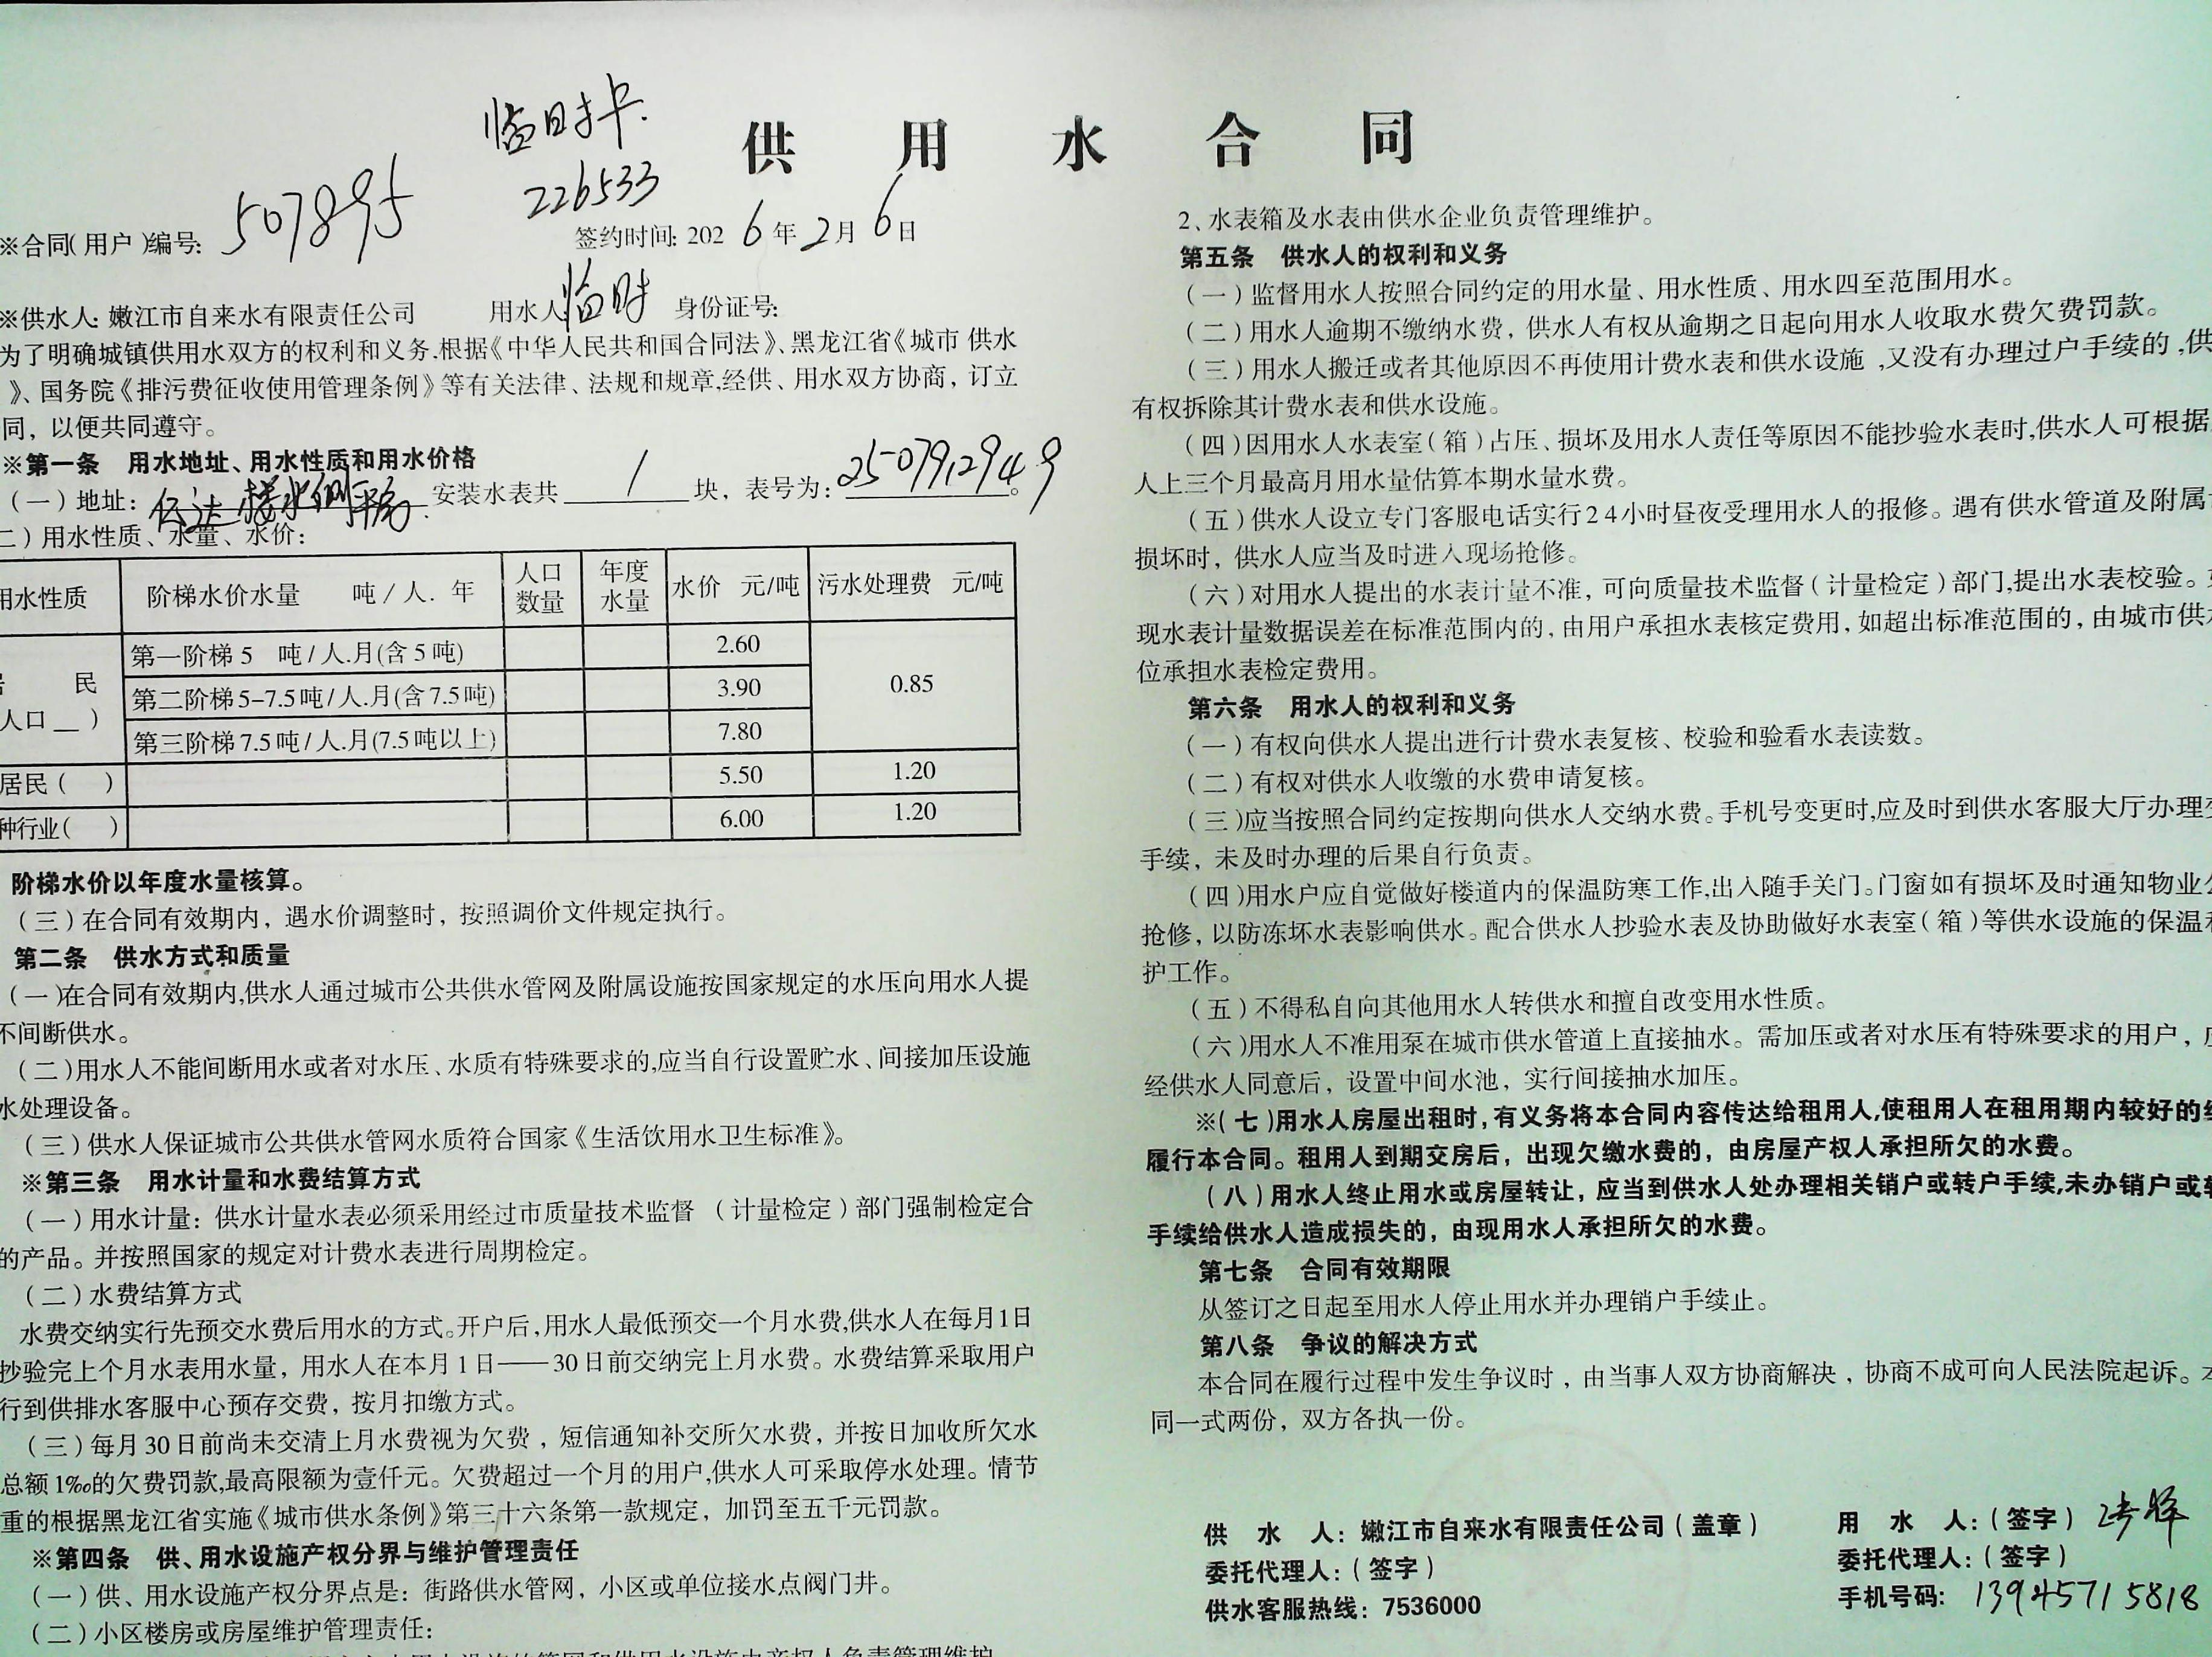 临时卡.
226533
供用水合同
※合同(用户)编号: 507895
签约时间: 2026年2月6日
※供水人: 嫩江市自来水有限责任公司 用水人 临时 身份证号:
为了明确城镇供用水双方的权利和义务,根据《中华人民共和国合同法》、黑龙江省《城市 供水
》、国务院《排污费征收使用管理条例》等有关法律、法规和规章,经供、用水双方协商，订立
同，以便共同遵守。
※第一条 用水地址、用水性质和用水价格
(一)地址: 安装水表共 1 块，表号为: 2507912949。
二)用水性质、水量、水价:
用水性质 阶梯水价水量 吨/人.年 人口数量 年度水量 水价 元/吨 污水处理费 元/吨
民
人口__)
第一阶梯 5 吨/人.月(含5吨) 2.60 0.85
第二阶梯 5-7.5吨/人.月(含7.5吨) 3.90
第三阶梯 7.5吨/人.月(7.5吨以上) 7.80
居民( ) 5.50 1.20
种行业( ) 6.00 1.20
阶梯水价以年度水量核算。
(三)在合同有效期内，遇水价调整时，按照调价文件规定执行。
第二条 供水方式和质量
(一)在合同有效期内,供水人通过城市公共供水管网及附属设施按国家规定的水压向用水人提
不间断供水。
(二)用水人不能间断用水或者对水压、水质有特殊要求的,应当自行设置贮水、间接加压设施
水处理设备。
(三)供水人保证城市公共供水管网水质符合国家《生活饮用水卫生标准》。
※第三条 用水计量和水费结算方式
(一)用水计量：供水计量水表必须采用经过市质量技术监督 (计量检定)部门强制检定合
的产品。并按照国家的规定对计费水表进行周期检定。
(二)水费结算方式
水费交纳实行先预交水费后用水的方式。开户后,用水人最低预交一个月水费,供水人在每月1日
抄验完上个月水表用水量，用水人在本月1日——30日前交纳完上月水费。水费结算采取用户
行到供排水客服中心预存交费，按月扣缴方式。
(三)每月30日前尚未交清上月水费视为欠费，短信通知补交所欠水费，并按日加收所欠水
总额1‰的欠费罚款,最高限额为壹仟元。欠费超过一个月的用户,供水人可采取停水处理。情节
重的根据黑龙江省实施《城市供水条例》第三十六条第一款规定，加罚至五千元罚款。
※第四条 供、用水设施产权分界与维护管理责任
(一)供、用水设施产权分界点是：街路供水管网，小区或单位接水点阀门井。
(二)小区楼房或房屋维护管理责任：
2、水表箱及水表由供水企业负责管理维护。
第五条 供水人的权利和义务
(一)监督用水人按照合同约定的用水量、用水性质、用水四至范围用水。
(二)用水人逾期不缴纳水费，供水人有权从逾期之日起向用水人收取水费欠费罚款。
(三)用水人搬迁或者其他原因不再使用计费水表和供水设施,又没有办理过户手续的,供
有权拆除其计费水表和供水设施。
(四)因用水人水表室(箱)占压、损坏及用水人责任等原因不能抄验水表时,供水人可根据
人上三个月最高月用水量估算本期水量水费。
(五)供水人设立专门客服电话实行24小时昼夜受理用水人的报修。遇有供水管道及附属
损坏时，供水人应当及时进入现场抢修。
(六)对用水人提出的水表计量不准，可向质量技术监督(计量检定)部门,提出水表校验。
现水表计量数据误差在标准范围内的,由用户承担水表核定费用,如超出标准范围的，由城市供
位承担水表检定费用。
第六条 用水人的权利和义务
(一)有权向供水人提出进行计费水表复核、校验和验看水表读数。
(二)有权对供水人收缴的水费申请复核。
(三)应当按照合同约定按期向供水人交纳水费。手机号变更时,应及时到供水客服大厅办理
手续，未及时办理的后果自行负责。
(四)用水户应自觉做好楼道内的保温防寒工作,出入随手关门。门窗如有损坏及时通知物业
抢修，以防冻坏水表影响供水。配合供水人抄验水表及协助做好水表室(箱)等供水设施的保温
护工作。
(五)不得私自向其他用水人转供水和擅自改变用水性质。
(六)用水人不准用泵在城市供水管道上直接抽水。需加压或者对水压有特殊要求的用户，
经供水人同意后，设置中间水池，实行间接抽水加压。
※(七)用水人房屋出租时,有义务将本合同内容传达给租用人,使租用人在租用期内较好的
履行本合同。租用人到期交房后，出现欠缴水费的，由房屋产权人承担所欠的水费。
(八)用水人终止用水或房屋转让，应当到供水人处办理相关销户或转户手续,未办销户或
手续给供水人造成损失的，由现用水人承担所欠的水费。
第七条 合同有效期限
从签订之日起至用水人停止用水并办理销户手续止。
第八条 争议的解决方式
本合同在履行过程中发生争议时，由当事人双方协商解决，协商不成可向人民法院起诉。
同一式两份，双方各执一份。
供 水 人：嫩江市自来水有限责任公司(盖章)
委托代理人：(签字)
供水客服热线：7536000
用 水 人：(签字)
委托代理人：(签字)
手机号码: 13945715818